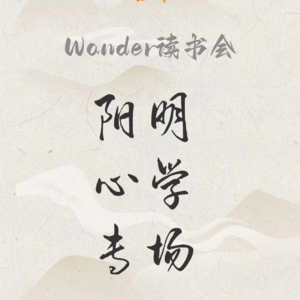 Wander读书会
阳明
心学
专场